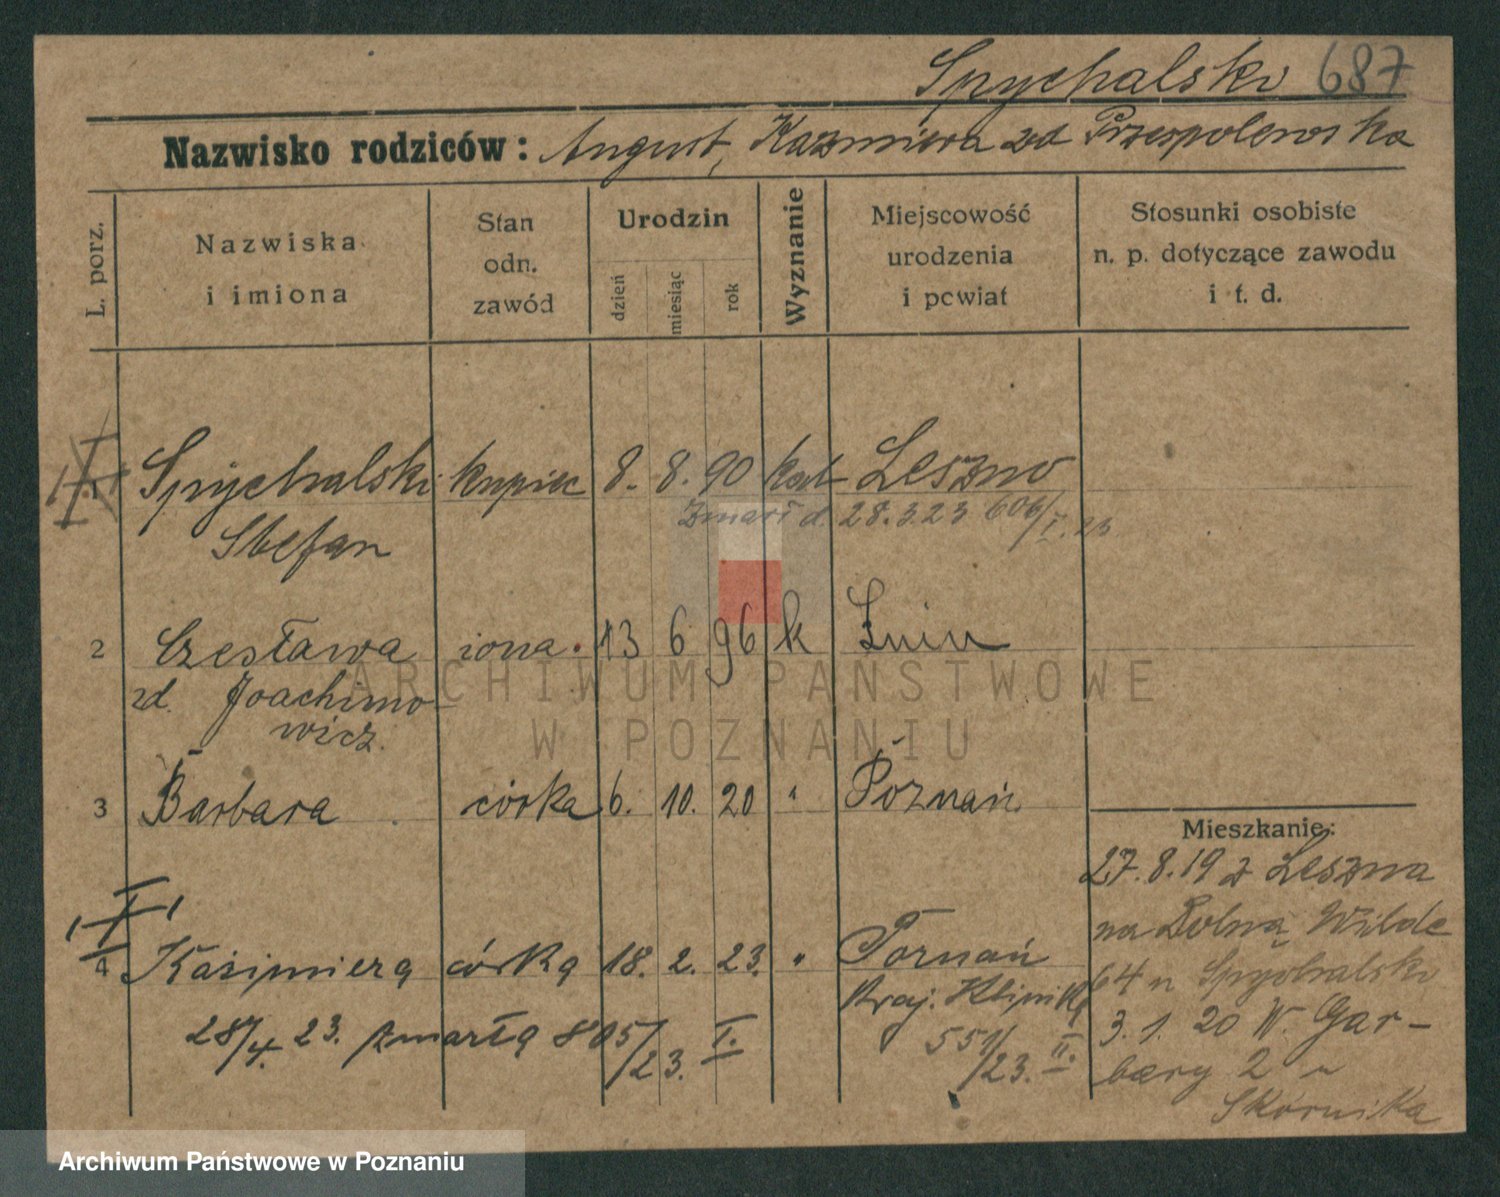 Spychalski 687
Nazwisko rodziców: August, Kazmiera zd Przespolewska
L. porz.
Nazwiska i imiona
Stan odn. zawód
Urodzin
dzień
miesiąc
rok
Wyznanie
Miejscowość urodzenia i powiat
Stosunki osobiste n. p. dotyczące zawodu i t. d.
1 Spychalski kupiec 8. 8. 90 kat Leszno
Stefan
zmarł d. 28.3.23 606/I.23
2 Czesława żona 13 6 96 k Żnin
zd. Joachimo-
wicz.
3 Barbara córka 6. 10. 20 " Poznań
4 Kaźimiera córka 18. 2. 23. " Poznań
Kraj. Klinika
551/23. II.
28/4. 23. zmarła 805/23. I.
Mieszkanie:
27.8.19 z Leszna
na Dolną Wildę
64 u Spychalski
3. 1. 20 W. Gar-
bary 2 u
Skórnika
ARCHIWUM PAŃSTWOWE
W POZNANIU
Archiwum Państwowe w Poznaniu